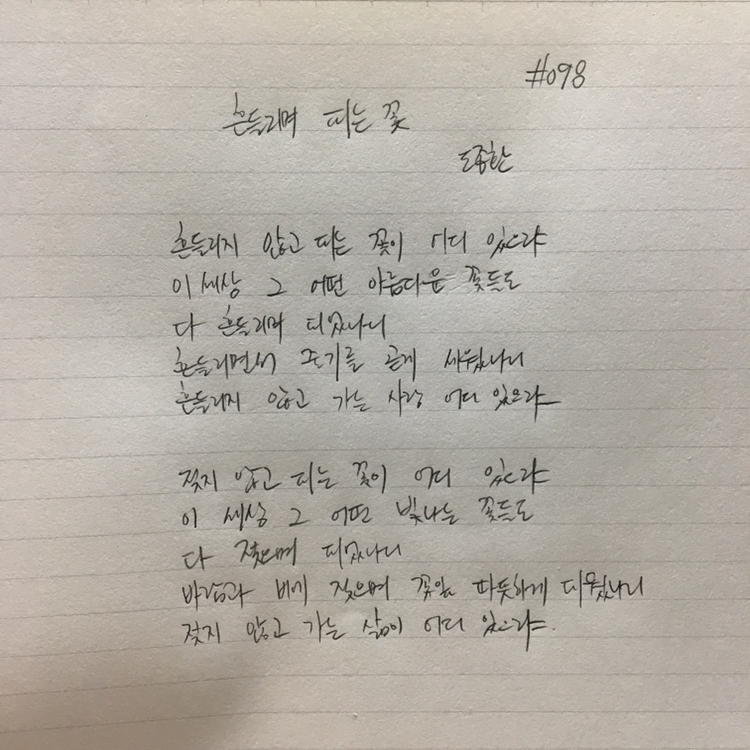 #098
흔들리며 피는 꽃
도종환
흔들리지 않고 피는 꽃이 어디 있으랴
이 세상 그 어떤 아름다운 꽃들도
다 흔들리며 피었나니
흔들리면서 줄기를 곧게 세웠나니
흔들리지 않고 가는 사랑 어디 있으랴
젖지 않고 피는 꽃이 어디 있으랴
이 세상 그 어떤 빛나는 꽃들도
다 젖으며 피었나니
바람과 비에 젖으며 꽃잎 따뜻하게 피웠나니
젖지 않고 가는 삶이 어디 있으랴.